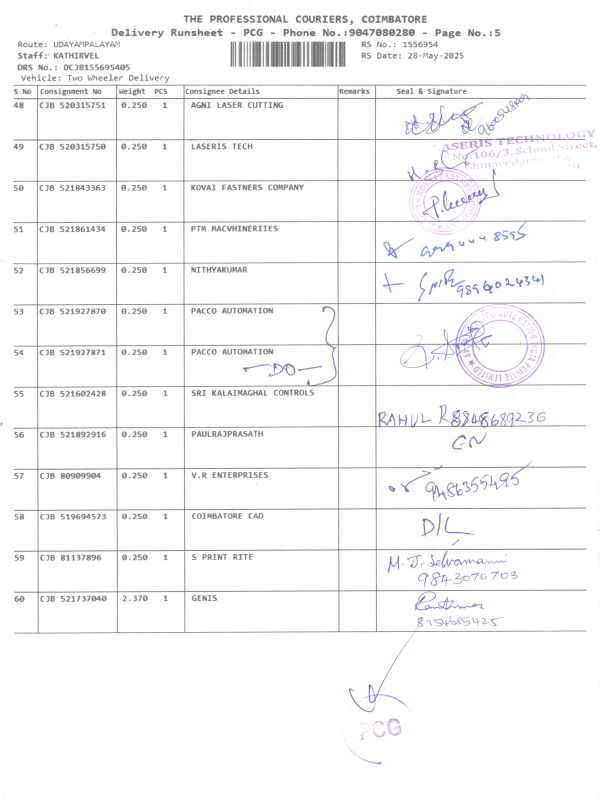 THE PROFESSIONAL COURIERS, COIMBATORE
Delivery Runsheet - PCG - Phone No.:9047080280 - Page No.:5
Route: UDAYAMPALAYAM RS No.: 1556954
Staff: KATHIRVEL RS Date: 28-May-2025
DRS No.: DCJB155695405
Vehicle: Two Wheeler Delivery
S No Consignment No Weight PCS Consignee Details Remarks Seal & Signature
48 CJB 520315751 0.250 1 AGNI LASER CUTTING
49 CJB 520315750 0.250 1 LASERIS TECH
ASERIS TECHNOLOGY
No:106/3, School Street,
50 CJB 521843363 0.250 1 KOVAI FASTNERS COMPANY
51 CJB 521861434 0.250 1 PTM MACVHINERIIES
52 CJB 521856699 0.250 1 NITHYAKUMAR
9894024341
53 CJB 521927870 0.250 1 PACCO AUTOMATION
54 CJB 521927871 0.250 1 PACCO AUTOMATION
DO
55 CJB 521602428 0.250 1 SRI KALAIMAGHAL CONTROLS
RAHUL R 8848689236
56 CJB 521892916 0.250 1 PAULRAJPRASATH
57 CJB 80909904 0.250 1 V.R ENTERPRISES
9486355495
58 CJB 519694573 0.250 1 COIMBATORE CAD
D/L
59 CJB 81137896 0.250 1 S PRINT RITE
M. J. Selvamani
9843070703
60 CJB 521737040 2.370 1 GENIS
8754685425
PCG